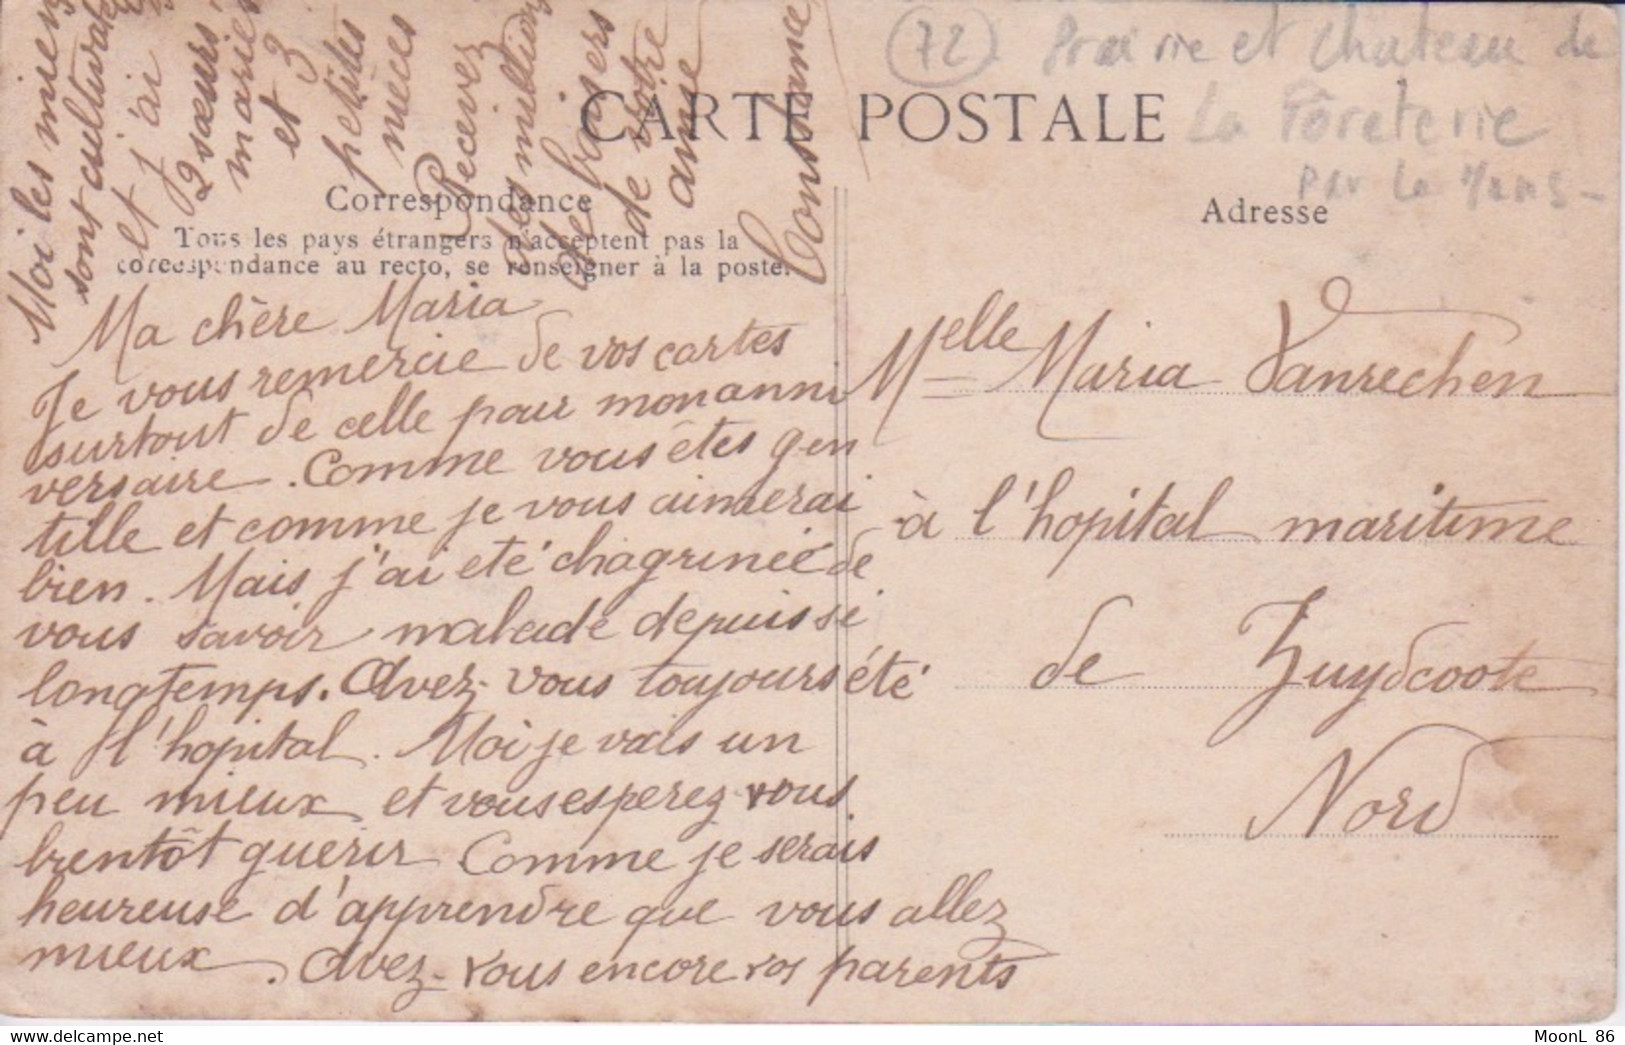 (72) Prairie et Chateau de
La Foreterie
par Le Mans -
CARTE POSTALE
Correspondance
Tous les pays étrangers n'acceptent pas la
correspondance au recto, se renseigner à la poste.
Adresse
Ma chère Maria
Je vous remercie de vos cartes
surtout de celle pour mon anni
versaire. Comme vous êtes gen
tille et comme je vous aimerai
bien. Mais j'ai été chagrinée de
vous savoir malade depuis si
longtemps. Avez-vous toujours été
à l'hopital. Moi je vais un
peu mieux et vous esperez vous
bientôt guérir Comme je serais
heureuse d'apprendre que vous allez
mieux. Avez-vous encore vos parents
Moi les miens
sont cultivate
et j'ai
2 sœurs
mariée
et 3
petites
nieces
Recevez
des millions
de baisers
de votre
amie
Constance
Melle Maria Vanrechen
à l'hopital maritime
de Zuydcoote
Nord
MoonL 86